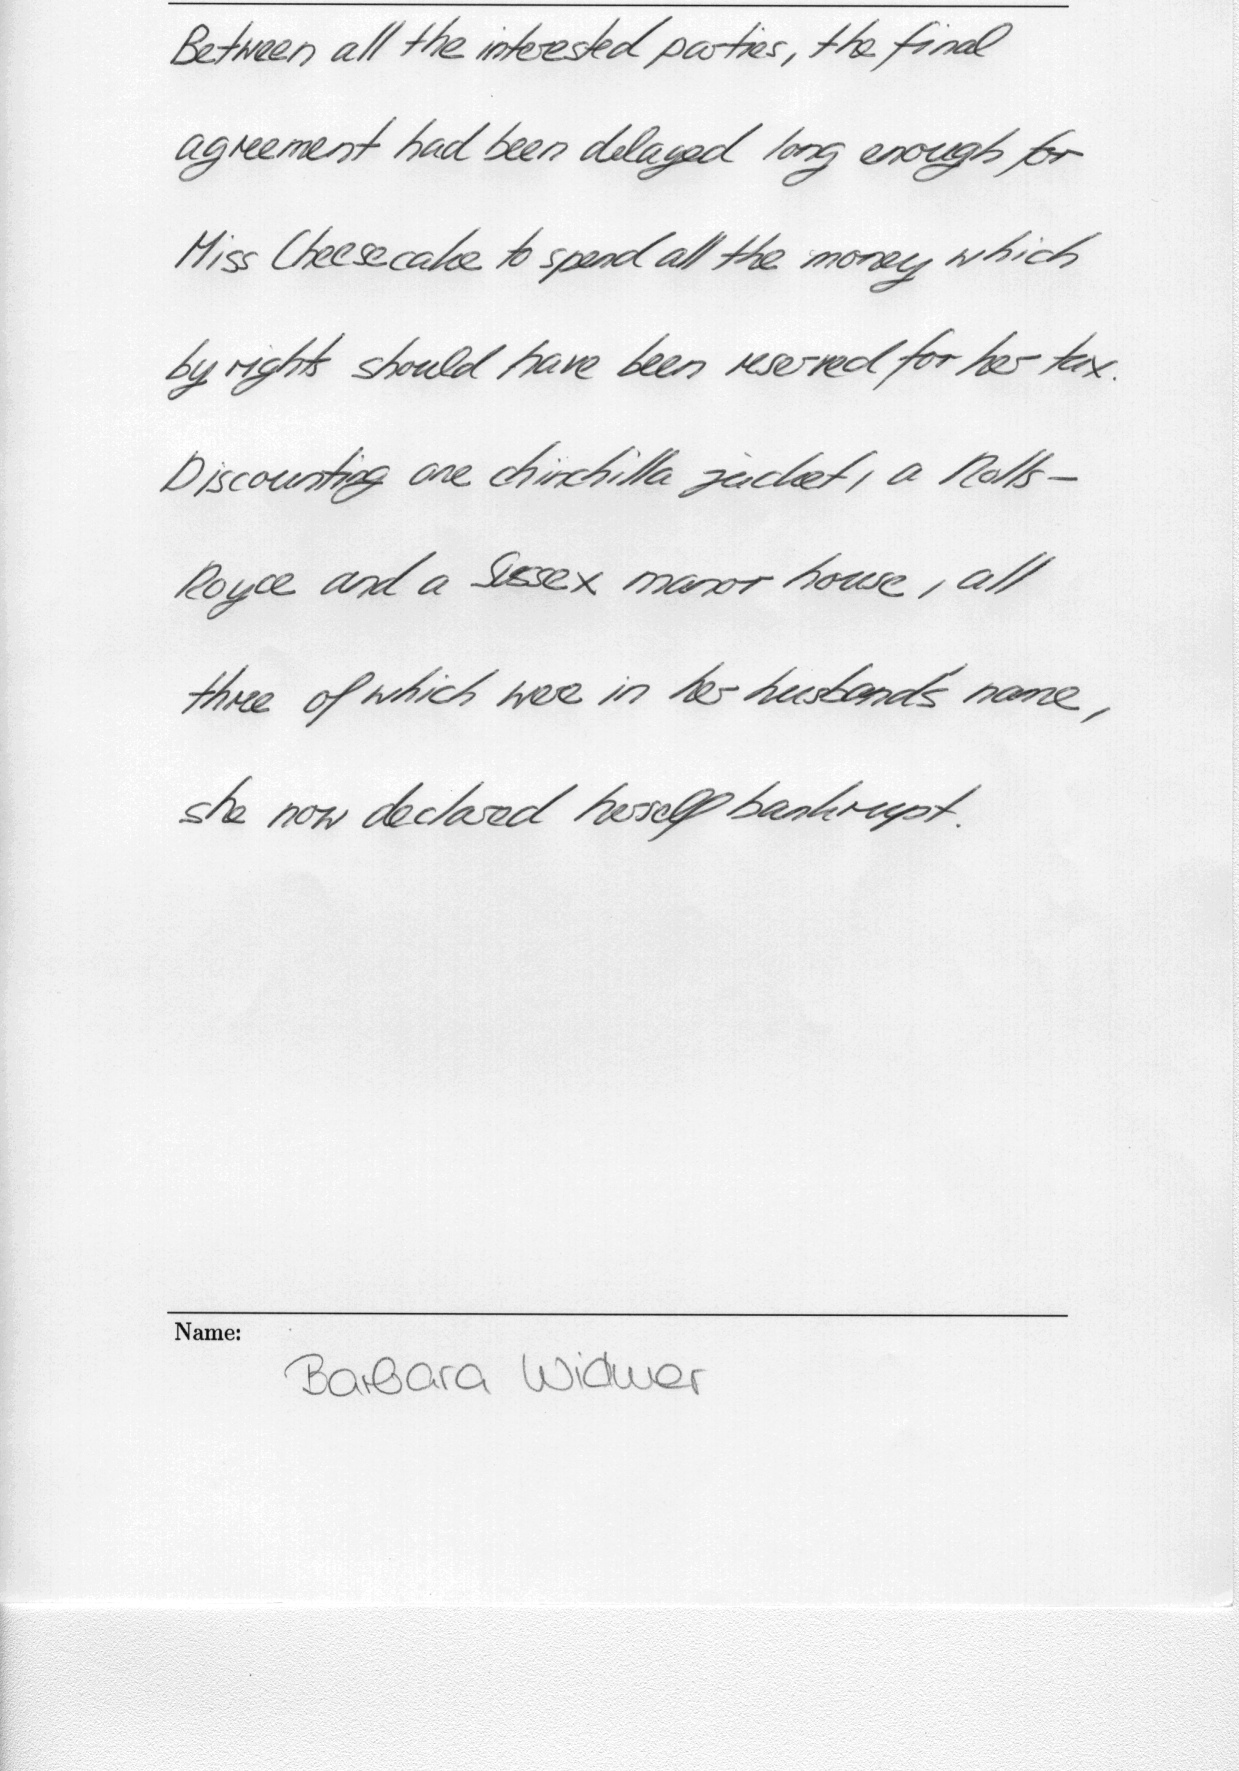 Between all the interested parties, the final
agreement had been delayed long enough for
Miss Cheesecake to spend all the money which
by rights should have been reserved for her tax.
Discounting one chinchilla jacket, a Rolls-
Royce and a Sussex manor house, all
three of which were in her husband's name,
she now declared herself bankrupt.
Name:
Barbara Widmer